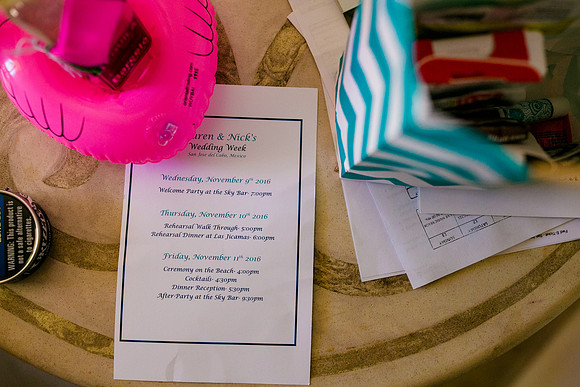 & Nick's
Wedding Week
San Jose del Cabo, Mexico
Wednesday, November 9th 2016
Welcome Party at the Sky Bar- 7:00pm
Thursday, November 10th 2016
Rehearsal Walk Through- 5:00pm
Rehearsal Dinner at Las Jicamas- 6:00pm
Friday, November 11th 2016
Ceremony on the Beach- 4:00pm
Cocktails- 4:30pm
Dinner Reception- 5:30pm
After-Party at the Sky Bar- 9:30pm
WARNING: This product
is not a safe alternative
to cigarettes.